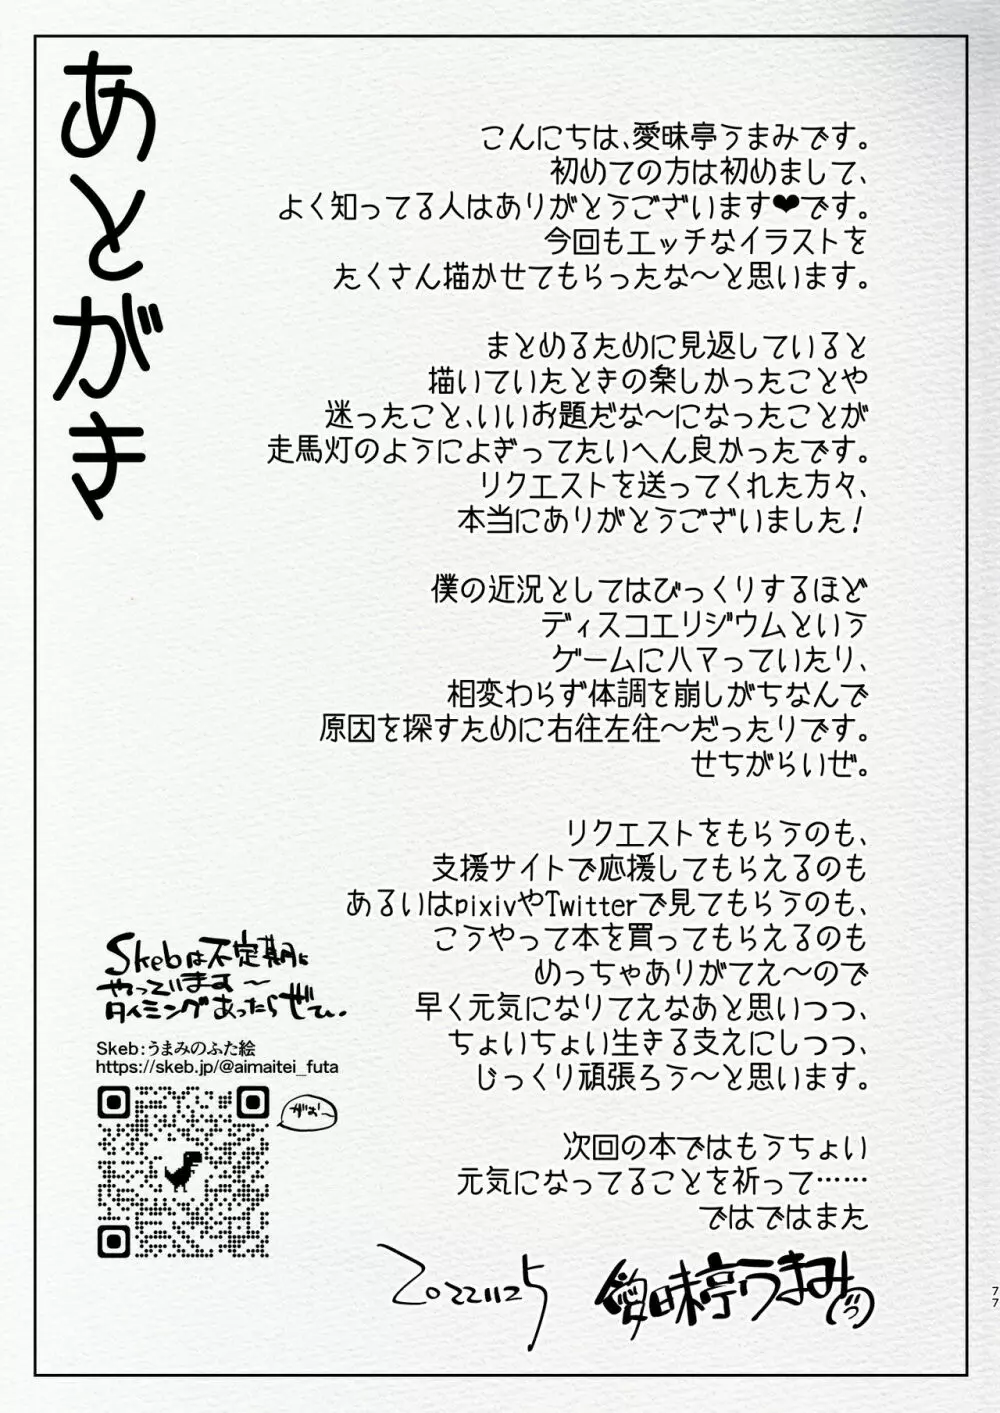 あとがき
こんにちは、愛昧亭うまみです。
初めての方は初めまして、
よく知ってる人はありがとうございます❤です。
今回もエッチなイラストを
たくさん描かせてもらったな～と思います。
まとめるために見返していると
描いていたときの楽しかったことや
迷ったこと、いいお題だな～になったことが
走馬灯のようによぎってたいへん良かったです。
リクエストを送ってくれた方々、
本当にありがとうございました！
僕の近況としてはびっくりするほど
ディスコエリジウムという
ゲームにハマっていたり、
相変わらず体調を崩しがちなんで
原因を探すために右往左往～だったりです。
せちがらいぜ。
リクエストをもらうのも、
支援サイトで応援してもらえるのも
あるいはpixivやTwitterで見てもらうのも、
こうやって本を買ってもらえるのも
めっちゃありがてえ～ので
早く元気になりてえなあと思いつつ、
ちょいちょい生きる支えにしつつ、
じっくり頑張ろう～と思います。
次回の本ではもうちょい
元気になってることを祈って……
ではではまた
20221125
愛昧亭うまみ
Skebは不定期に
やっています～
タイミングあったらぜひ..
Skeb:うまみのふた絵
https://skeb.jp/@aimaitei_futa
がお～
77